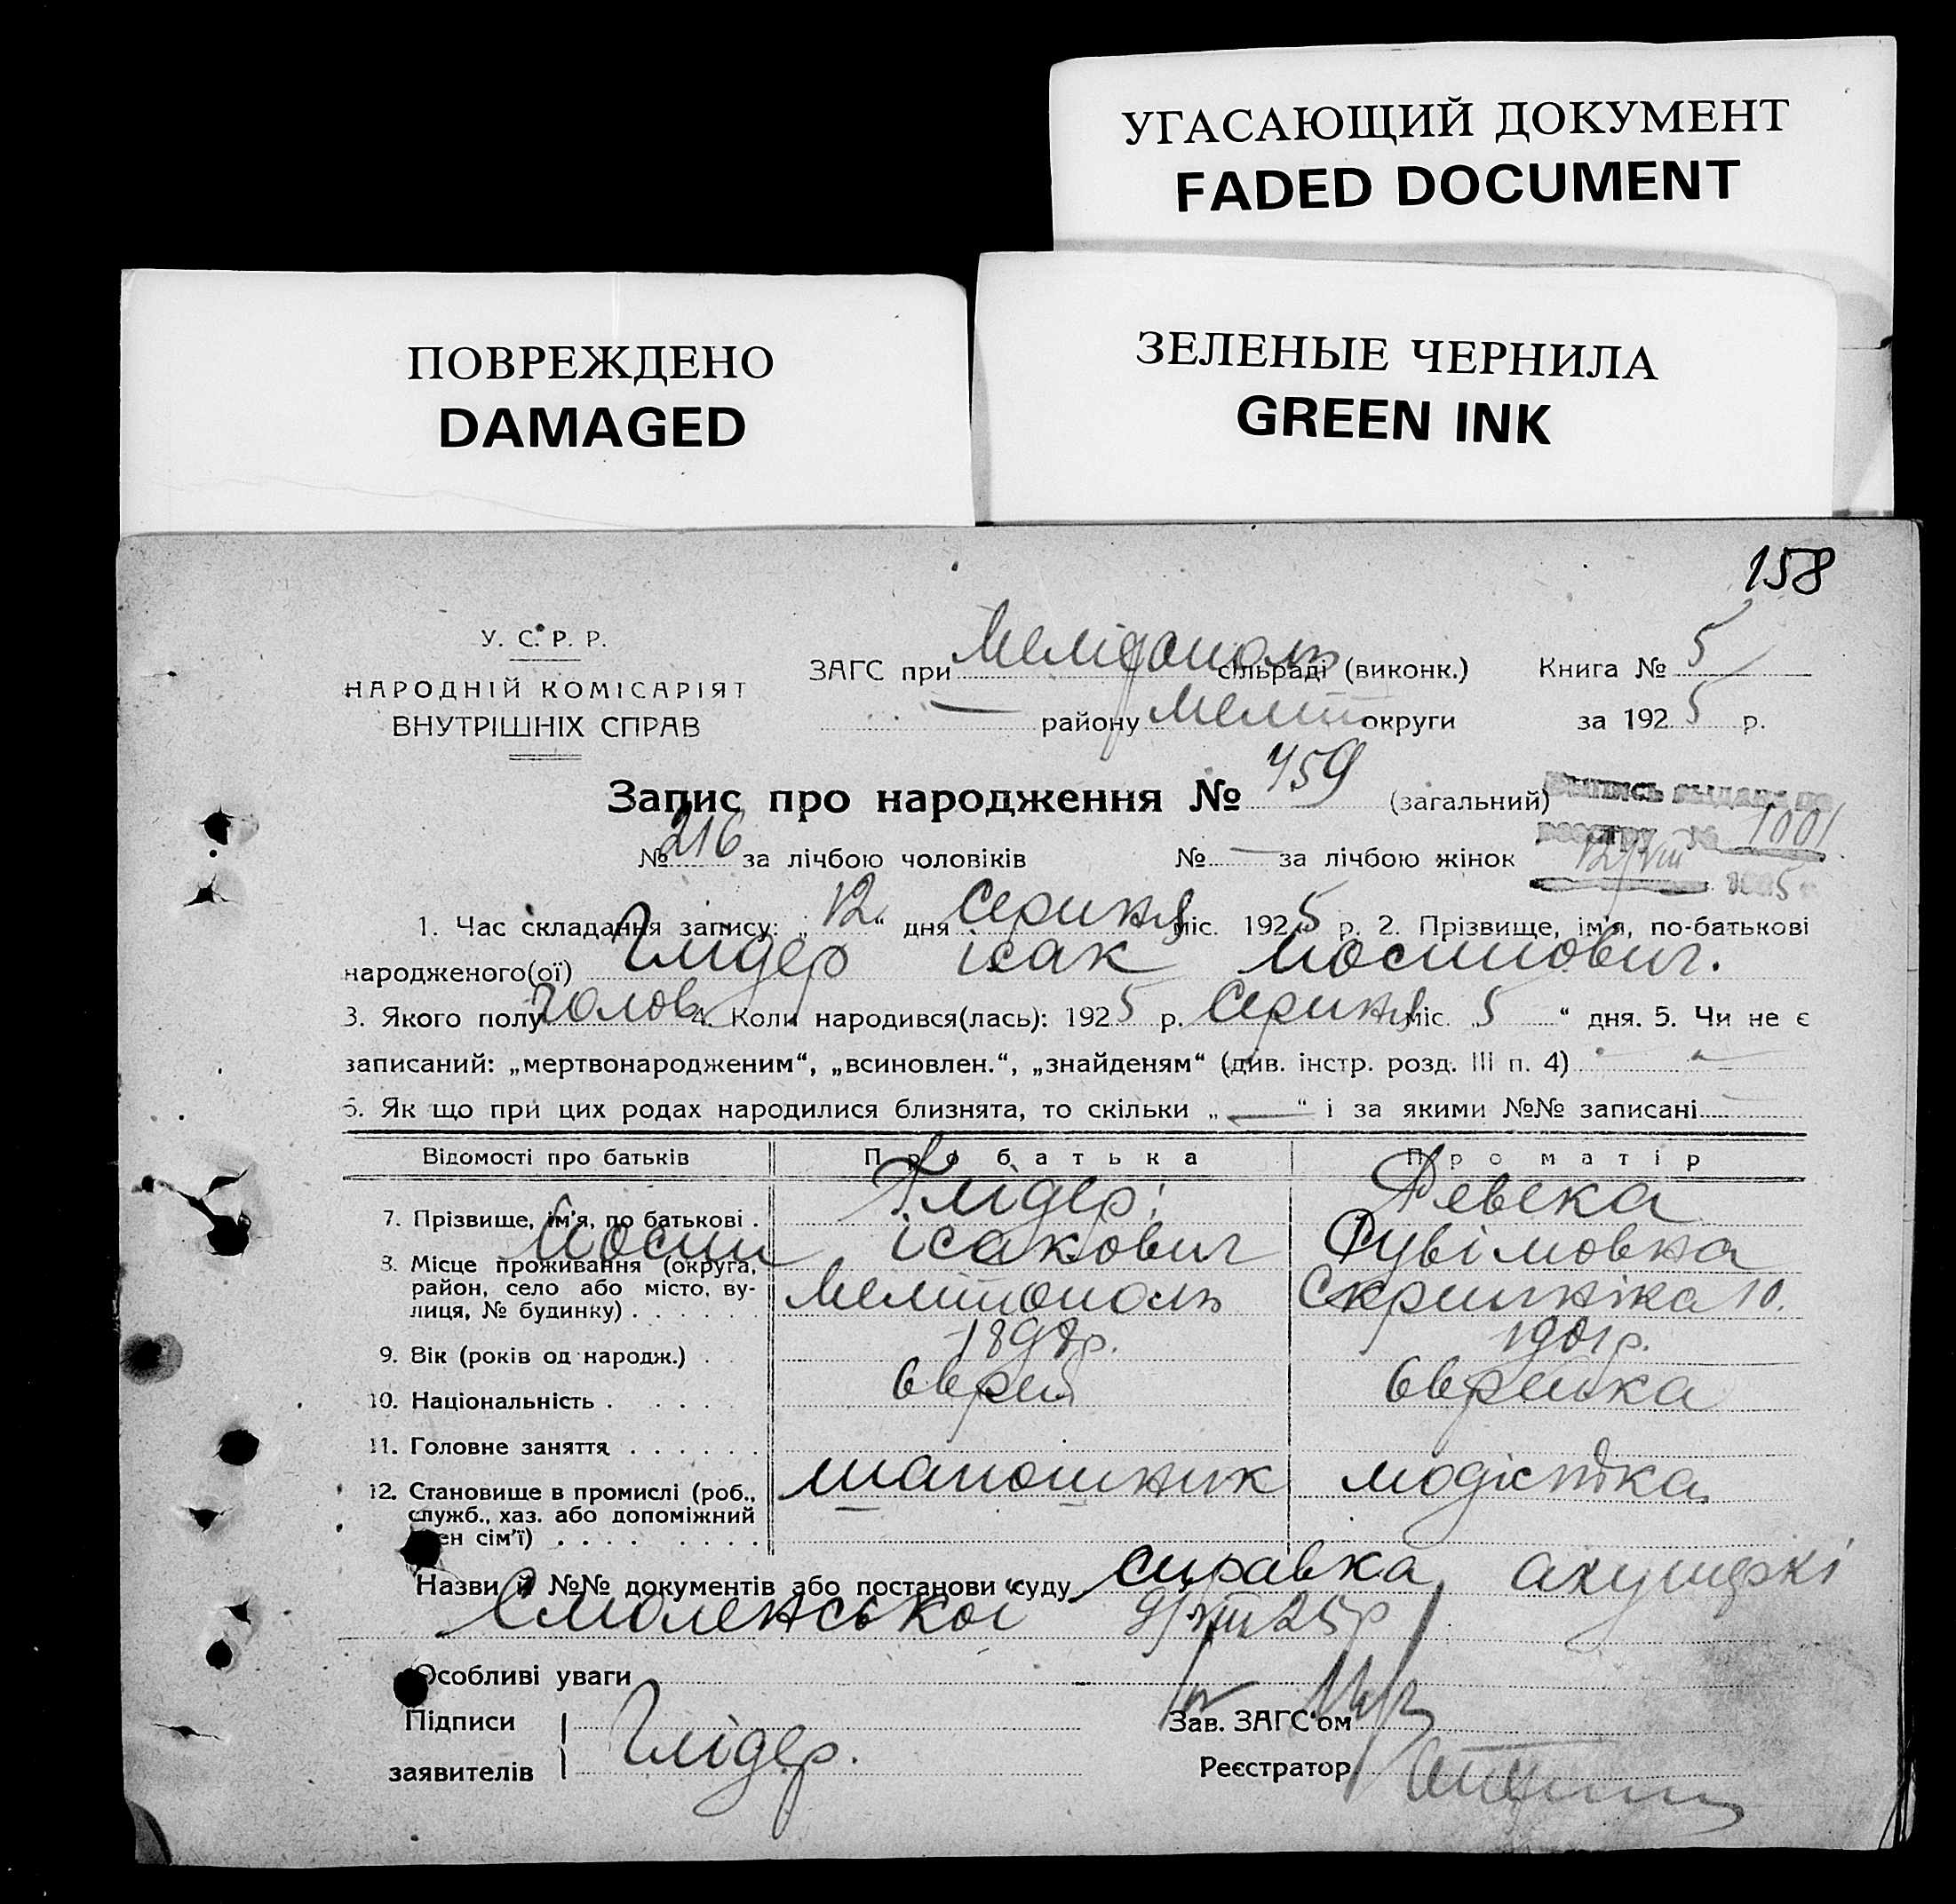 УГАСАЮЩИЙ ДОКУМЕНТ
FADED DOCUMENT
ПОВРЕЖДЕНО
DAMAGED
ЗЕЛЕНЫЕ ЧЕРНИЛА
GREEN INK
158
У. С. Р. Р.
НАРОДНІЙ КОМІСАРІЯТ
ВНУТРІШНІХ СПРАВ
ЗАГС при Мелітополь сільраді (виконк.) Книга № 5
— району Меліт округи за 1925 р.
Запис про народження № 759 (загальний)
Выпись выдана по
реестру № 1001
12/VIII 1925
№ 216 за лічбою чоловіків № — за лічбою жінок
1. Час складання запису: „12“ дня Серпня міс. 1925 р. 2. Прізвище, ім'я, по-батькові
народженого(ої) Глідер ісак Иосипович.
3. Якого полу чолов 4. Коли народився(лась): 1925 р. Серпня міс. „5“ дня. 5. Чи не є
записаний: „мертвонародженим“, „всиновлен.“, „знайденям“ (див. інстр. розд. III п. 4) —
6. Як що при цих родах народилися близнята, то скільки „—“ і за якими №№ записані —
Відомості про батьків Про батька Про матір
7. Прізвище, ім'я, по батькові . Глідер Ревека
Иосип ісакович Рувімовна
8. Місце проживання (округа, район, село або місто, вулиця, № будинку) . . . . . Мелітополь Скрипніка 10.
9. Вік (років од народж.) . 1898р. 1901р.
10. Національність . . . . Єврей Єврейка
11. Головне заняття . . . . . .
шапошник модістка
12. Становище в промислі (роб.,
служб., хаз. або допоміжний
ен сім'ї) . . . . . . . .
Назви й №№ документів або постанови суду справка акушеркі
Смоленської 9/VIII 25р
Особливі уваги
Підписи
заявителів Глідер.
Зав. ЗАГС'ом
Реєстратор